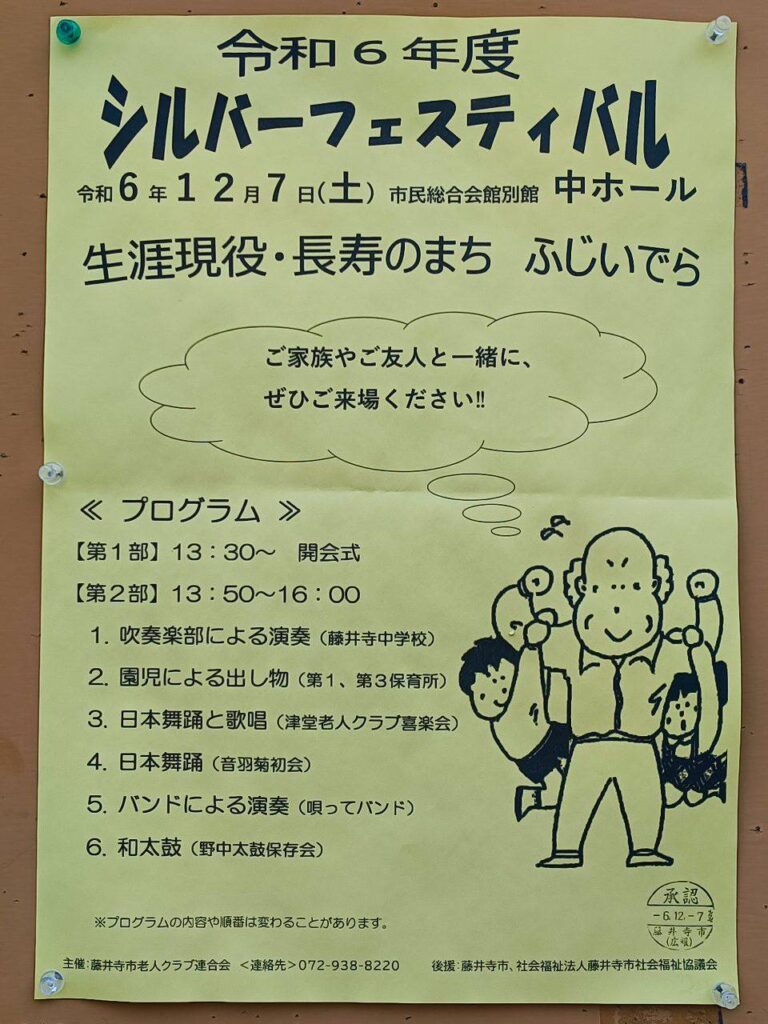 令和６年度
シルバーフェスティバル
令和６年１２月７日(土) 市民総合会館別館 中ホール
生涯現役・長寿のまち ふじいでら
ご家族やご友人と一緒に、
ぜひご来場ください!!
≪ プログラム ≫
【第１部】１３：３０～ 開会式
【第２部】１３：５０～１６：００
１．吹奏楽部による演奏（藤井寺中学校）
２．園児による出し物（第１、第３保育所）
３．日本舞踊と歌唱（津堂老人クラブ喜楽会）
４．日本舞踊（音羽菊初会）
５．バンドによる演奏（唄ってバンド）
６．和太鼓（野中太鼓保存会）
※プログラムの内容や順番は変わることがあります。
承認
-6.12.-7
井寺市
主催:藤井寺市老人クラブ連合会 <連絡先>072-938-8220 後援:藤井寺市、社会福祉法人藤井寺市社会福祉協議会